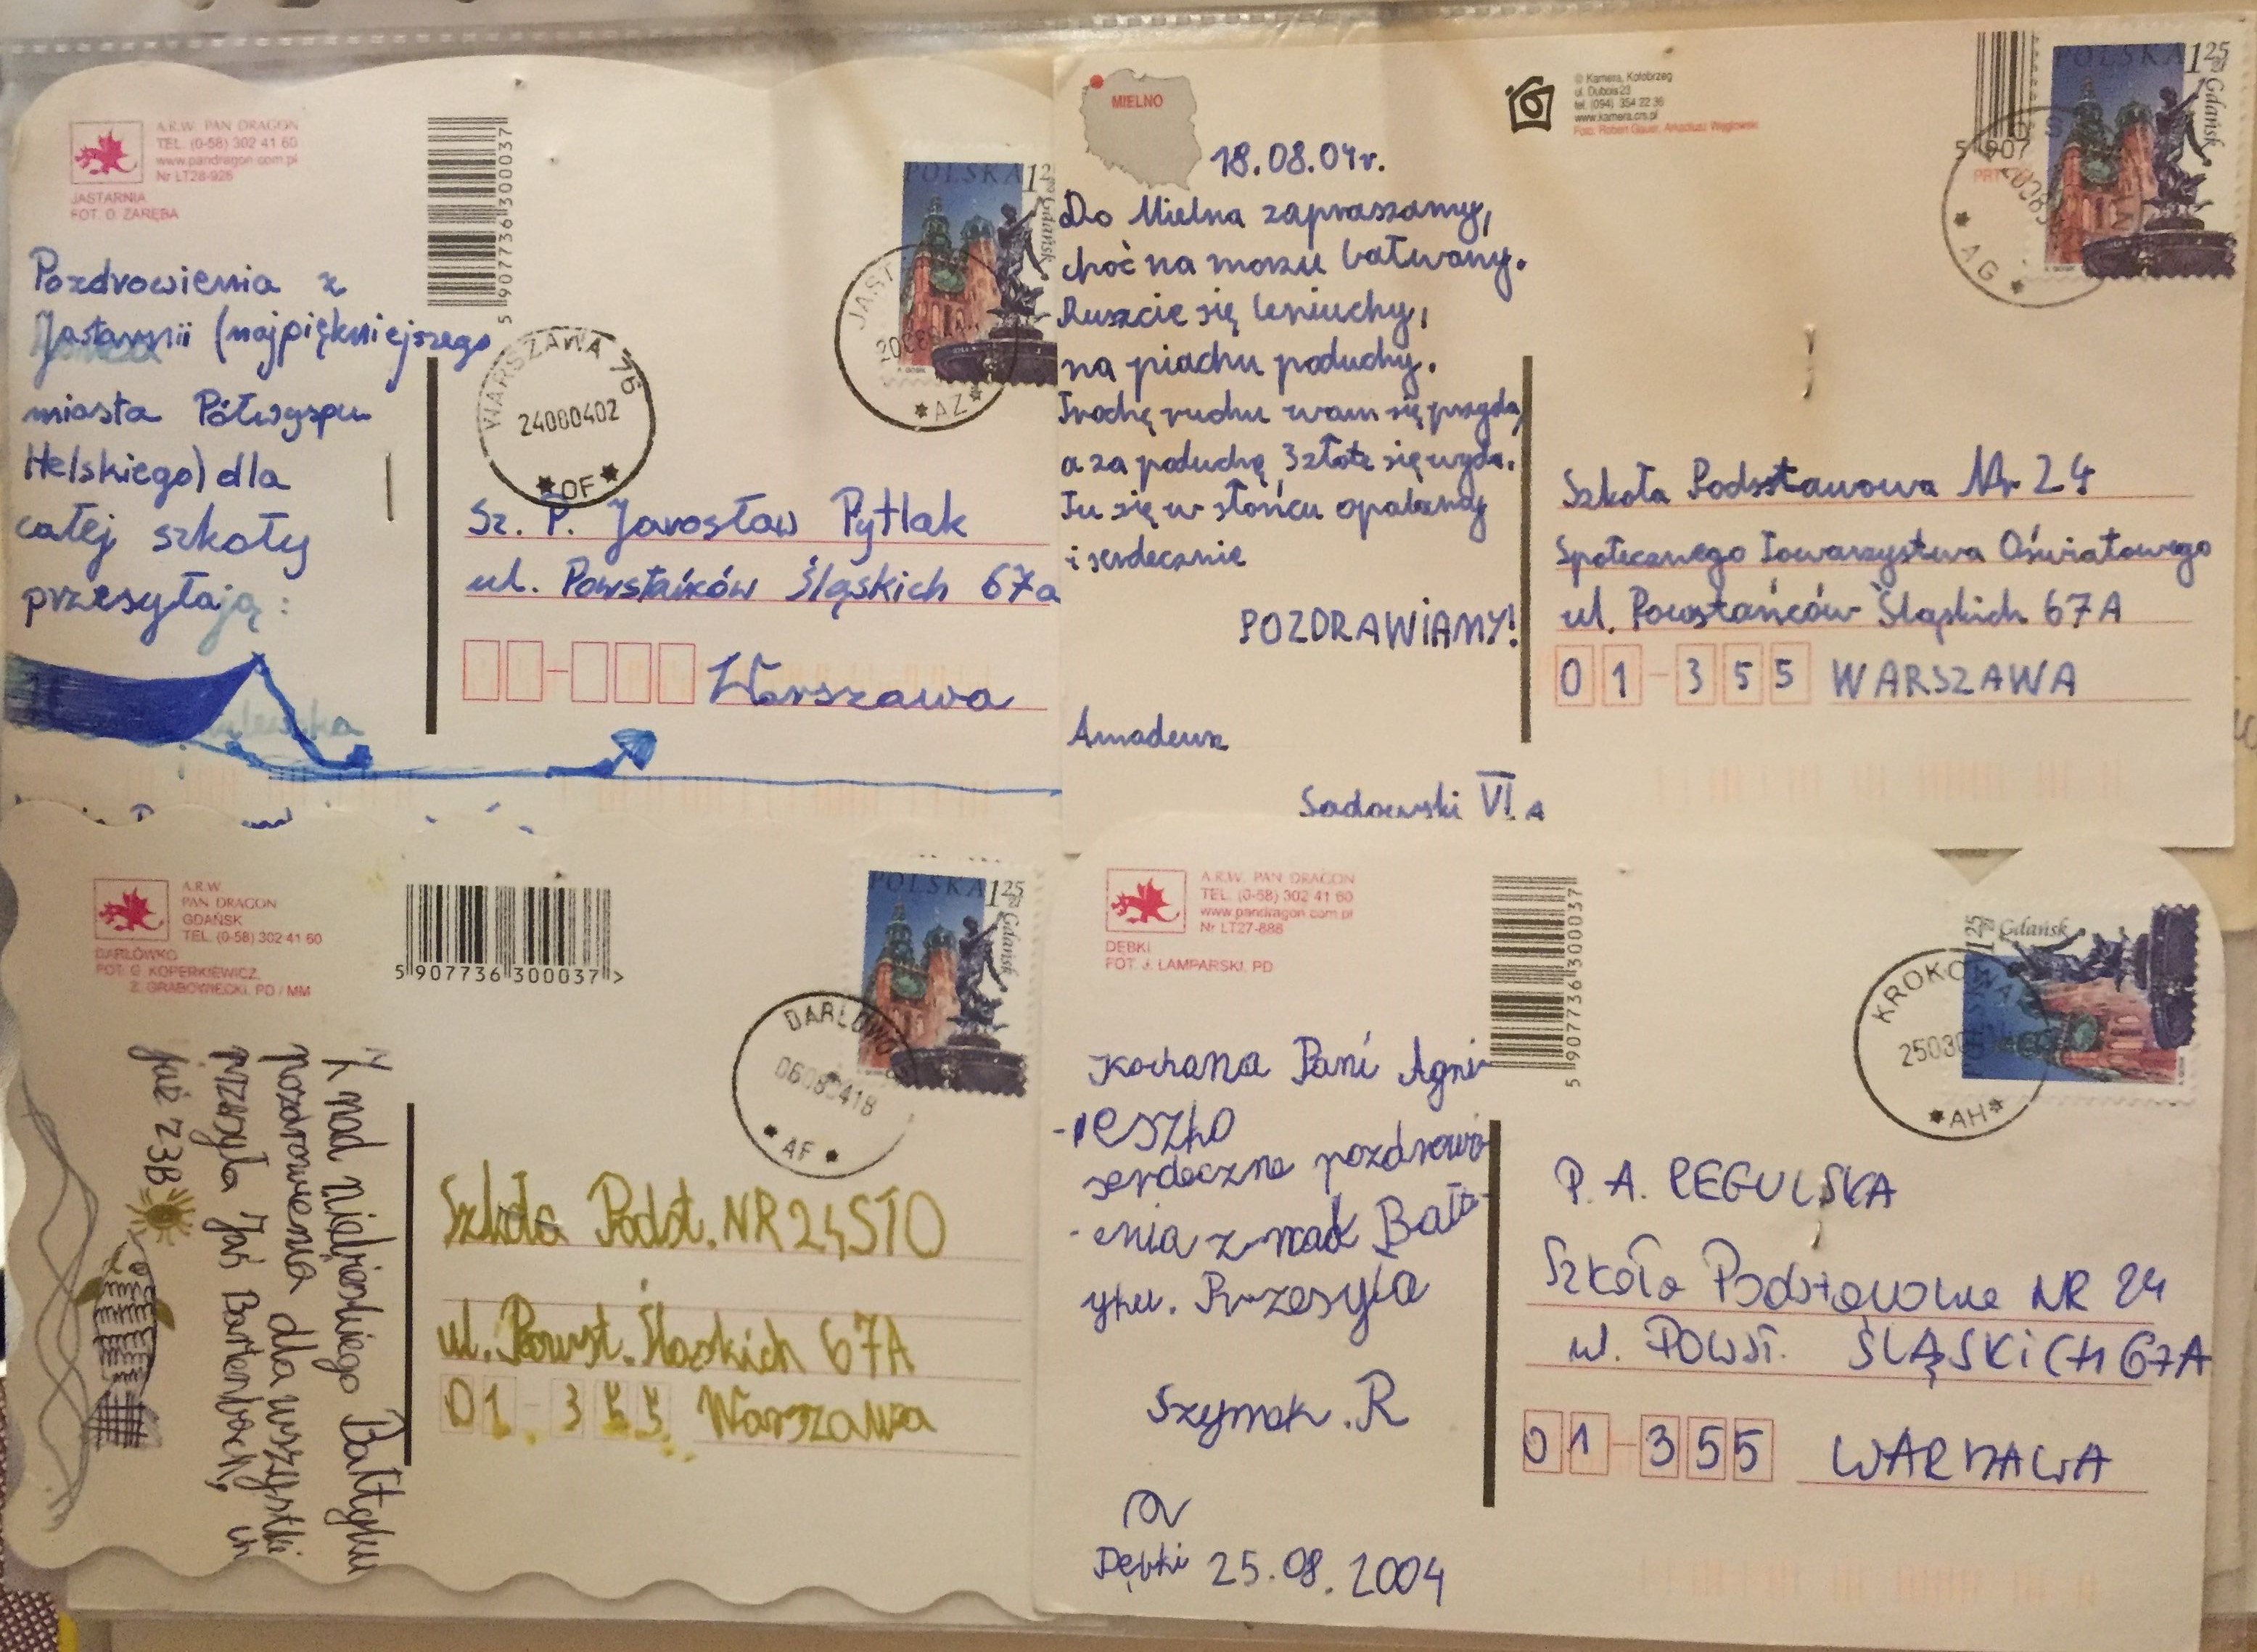 A.R.W. PAN DRAGON
TEL. (0-58) 302 41 60
www.pandragon.com.pl
Nr LT28-926
JASTARNIA
FOT. O. ZARĘBA
5 907736 300037
POLSKA
Gdańsk
JAST
*AZ*
WARSZAWA 76
24080402
*OF*
Pozdrowienia z
Jastarnii (najpiękniejszego
miasta Półwyspu
Helskiego) dla
całej szkoły
przesyłają:
Sz. P. Jarosław Pytlak
ul. Powstańców Śląskich 67a
Warszawa
MIELNO
© Kamera, Kołobrzeg
ul. Dubois 23
tel. (094) 354 22 36
www.kamera.crs.pl
POLSKA 1 25 zł
Gdańsk
5 907
* AG *
18.08.04r.
Do Mielna zapraszamy,
choć na morzu bałwany.
Ruszcie się leniuchy,
na piachu poduchy.
Trochę ruchu wam się przyda,
a za poduchę 3 złote się wyda.
Tu się w słońcu opalamy
i serdecznie
POZDRAWIAMY!
Amadeusz
Sadowski VI A
Szkoła Podstawowa Nr 24
Społecznego Towarzystwa Oświatowego
ul. Powstańców Śląskich 67A
01-355 WARSZAWA
A.R.W.
PAN DRAGON
GDAŃSK
TEL. (0-58) 302 41 60
DARŁÓWKO
FOT. G. KOPERKIEWICZ,
Z. GRABOWIECKI, PD / MM
5 907736 300037 >
POLSKA 1 25 zł
Gdańsk
DARŁOWO
* AF *
Z nad niebieskiego Bałtyku
pozdrowienia dla wszystkich
przesyła Jaś Bartenbach,
już z 3B
Szkoła Podst. NR 24 STO
ul. Powst. Śląskich 67A
01-355 Warszawa
A.R.W. PAN DRAGON
TEL. (0-58) 302 41 60
www.pandragon.com.pl
Nr LT27-886
DĘBKI
FOT. J. LAMPARSKI, PD
5 907736 300037
1 25 zł Gdańsk
KROKOWA
*AH*
Kochana Pani Agni
-eszko
serdeczne pozdrowi
-enia z nad Bałt
yku. Przesyła
Szymek. R
Dębki 25.08.2004
P. A. REGULSKA
Szkoła Podstawowa NR 24
ul. POWST. ŚLĄSKICH 67A
01-355 WARSZAWA